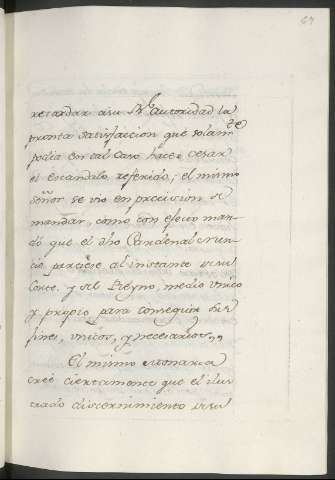 retardar á su Rl autoridad la
pronta satisfaccion que solamte
podia en tal caso hacer cesar
el escandalo referido; el mismo
Señor se vio en precision de
mandar, como con efecto man-
dó que el dho Cardenal Nun-
cio partiese al instante de su
Corte, y del Reyno, medio unico
y propio para conseguir sus
fines, unicos, y necesarios,,
El mismo Monarca
creé ciertamente que el ilus-
trado discernimiento de su